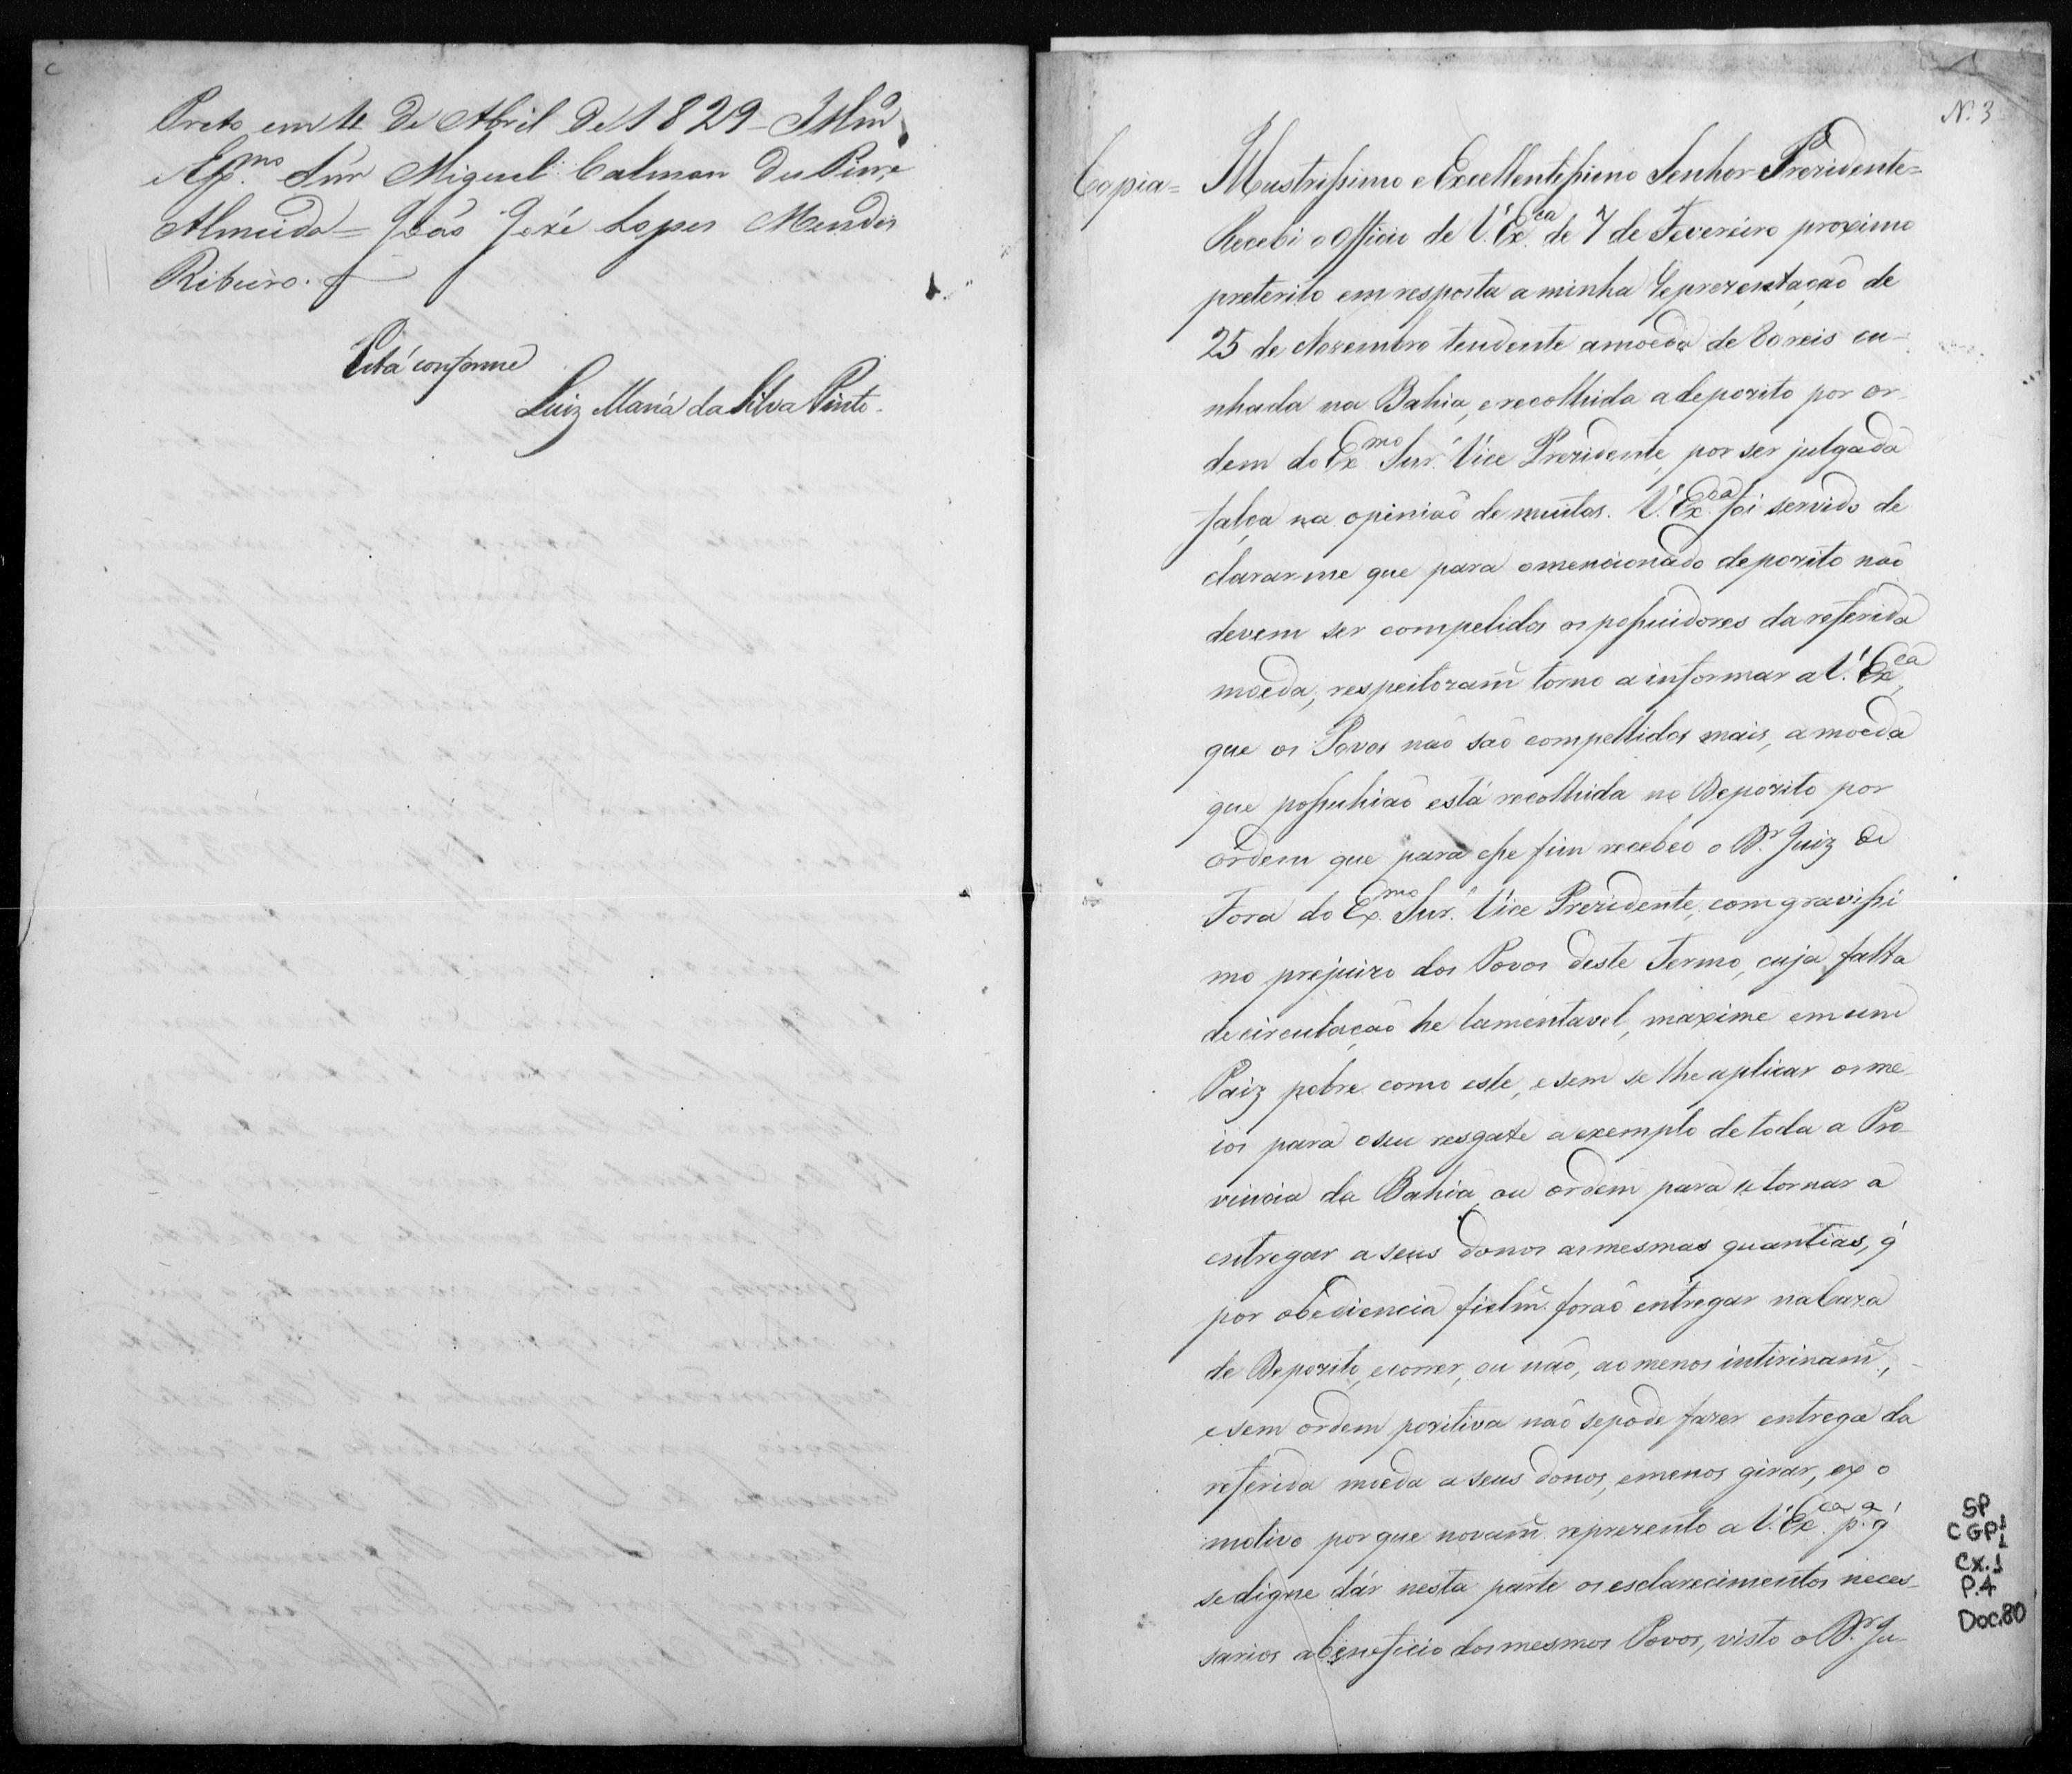 Preto em 11 de Abril de 1829 - Illmo
e Exmo Snr Miguel Calmon du Pin e
Almeida = João José Lopes Mendes
Ribeiro.
Está conforme
Luiz Maria da Silva Pinto.
N. 3
Copia = Illustrissimo e Excellentissimo Senhor Prezidente =
Recebi o officio de V. Exca de 7 de Fevereiro proximo
preterito em resposta a minha Reprezentação de
25 de Novembro tendente a moeda de 80 reis cu-
nhada na Bahia, e recolhida a depozito por or-
dem do Exmo Snr. Vice Prezidente, por ser julgada
falça na opinião de muitos. V. Exca foi servido de
clarar-me que para o mencionado depozito não
devem ser compelidos os possuidores da referida
moeda, respeitozam.e torno a informar a V. Exca,
que os Povos não são compellidos mais, a moeda
que possuhião está recolhida no Depozito por
ordem que para esse fim recebeo o Dr. Juiz de
Fora do Exmo Snr. Vice Prezidente, com gravissi
mo prejuizo dos Povos deste Termo, cuja falta
de circulação he lamentavel, maxime em um
Paiz pobre como este, e sem se lhe aplicar os me-
ios para o seu resgate a exemplo de toda a Pro-
vincia da Bahia, ou ordem para se tornar a
entregar a seus donos as mesmas quantias, q'
por obediencia fielm.e forão entregar na Caza
de Depozito, e correr, ou não, ao menos intirinam.e,
e sem ordem pozitiva não se pode fazer entrega da
referida moeda a seus donos, e menos girar, ex o
motivo por que novam.e reprezento a V. Exca p.a q'
se digne dár nesta parte os esclarecimentos neces-
sarios a beneficio dos mesmos Povos, visto o Dr. Ju-
SP
CGP1
Cx.1
P.4
Doc.80